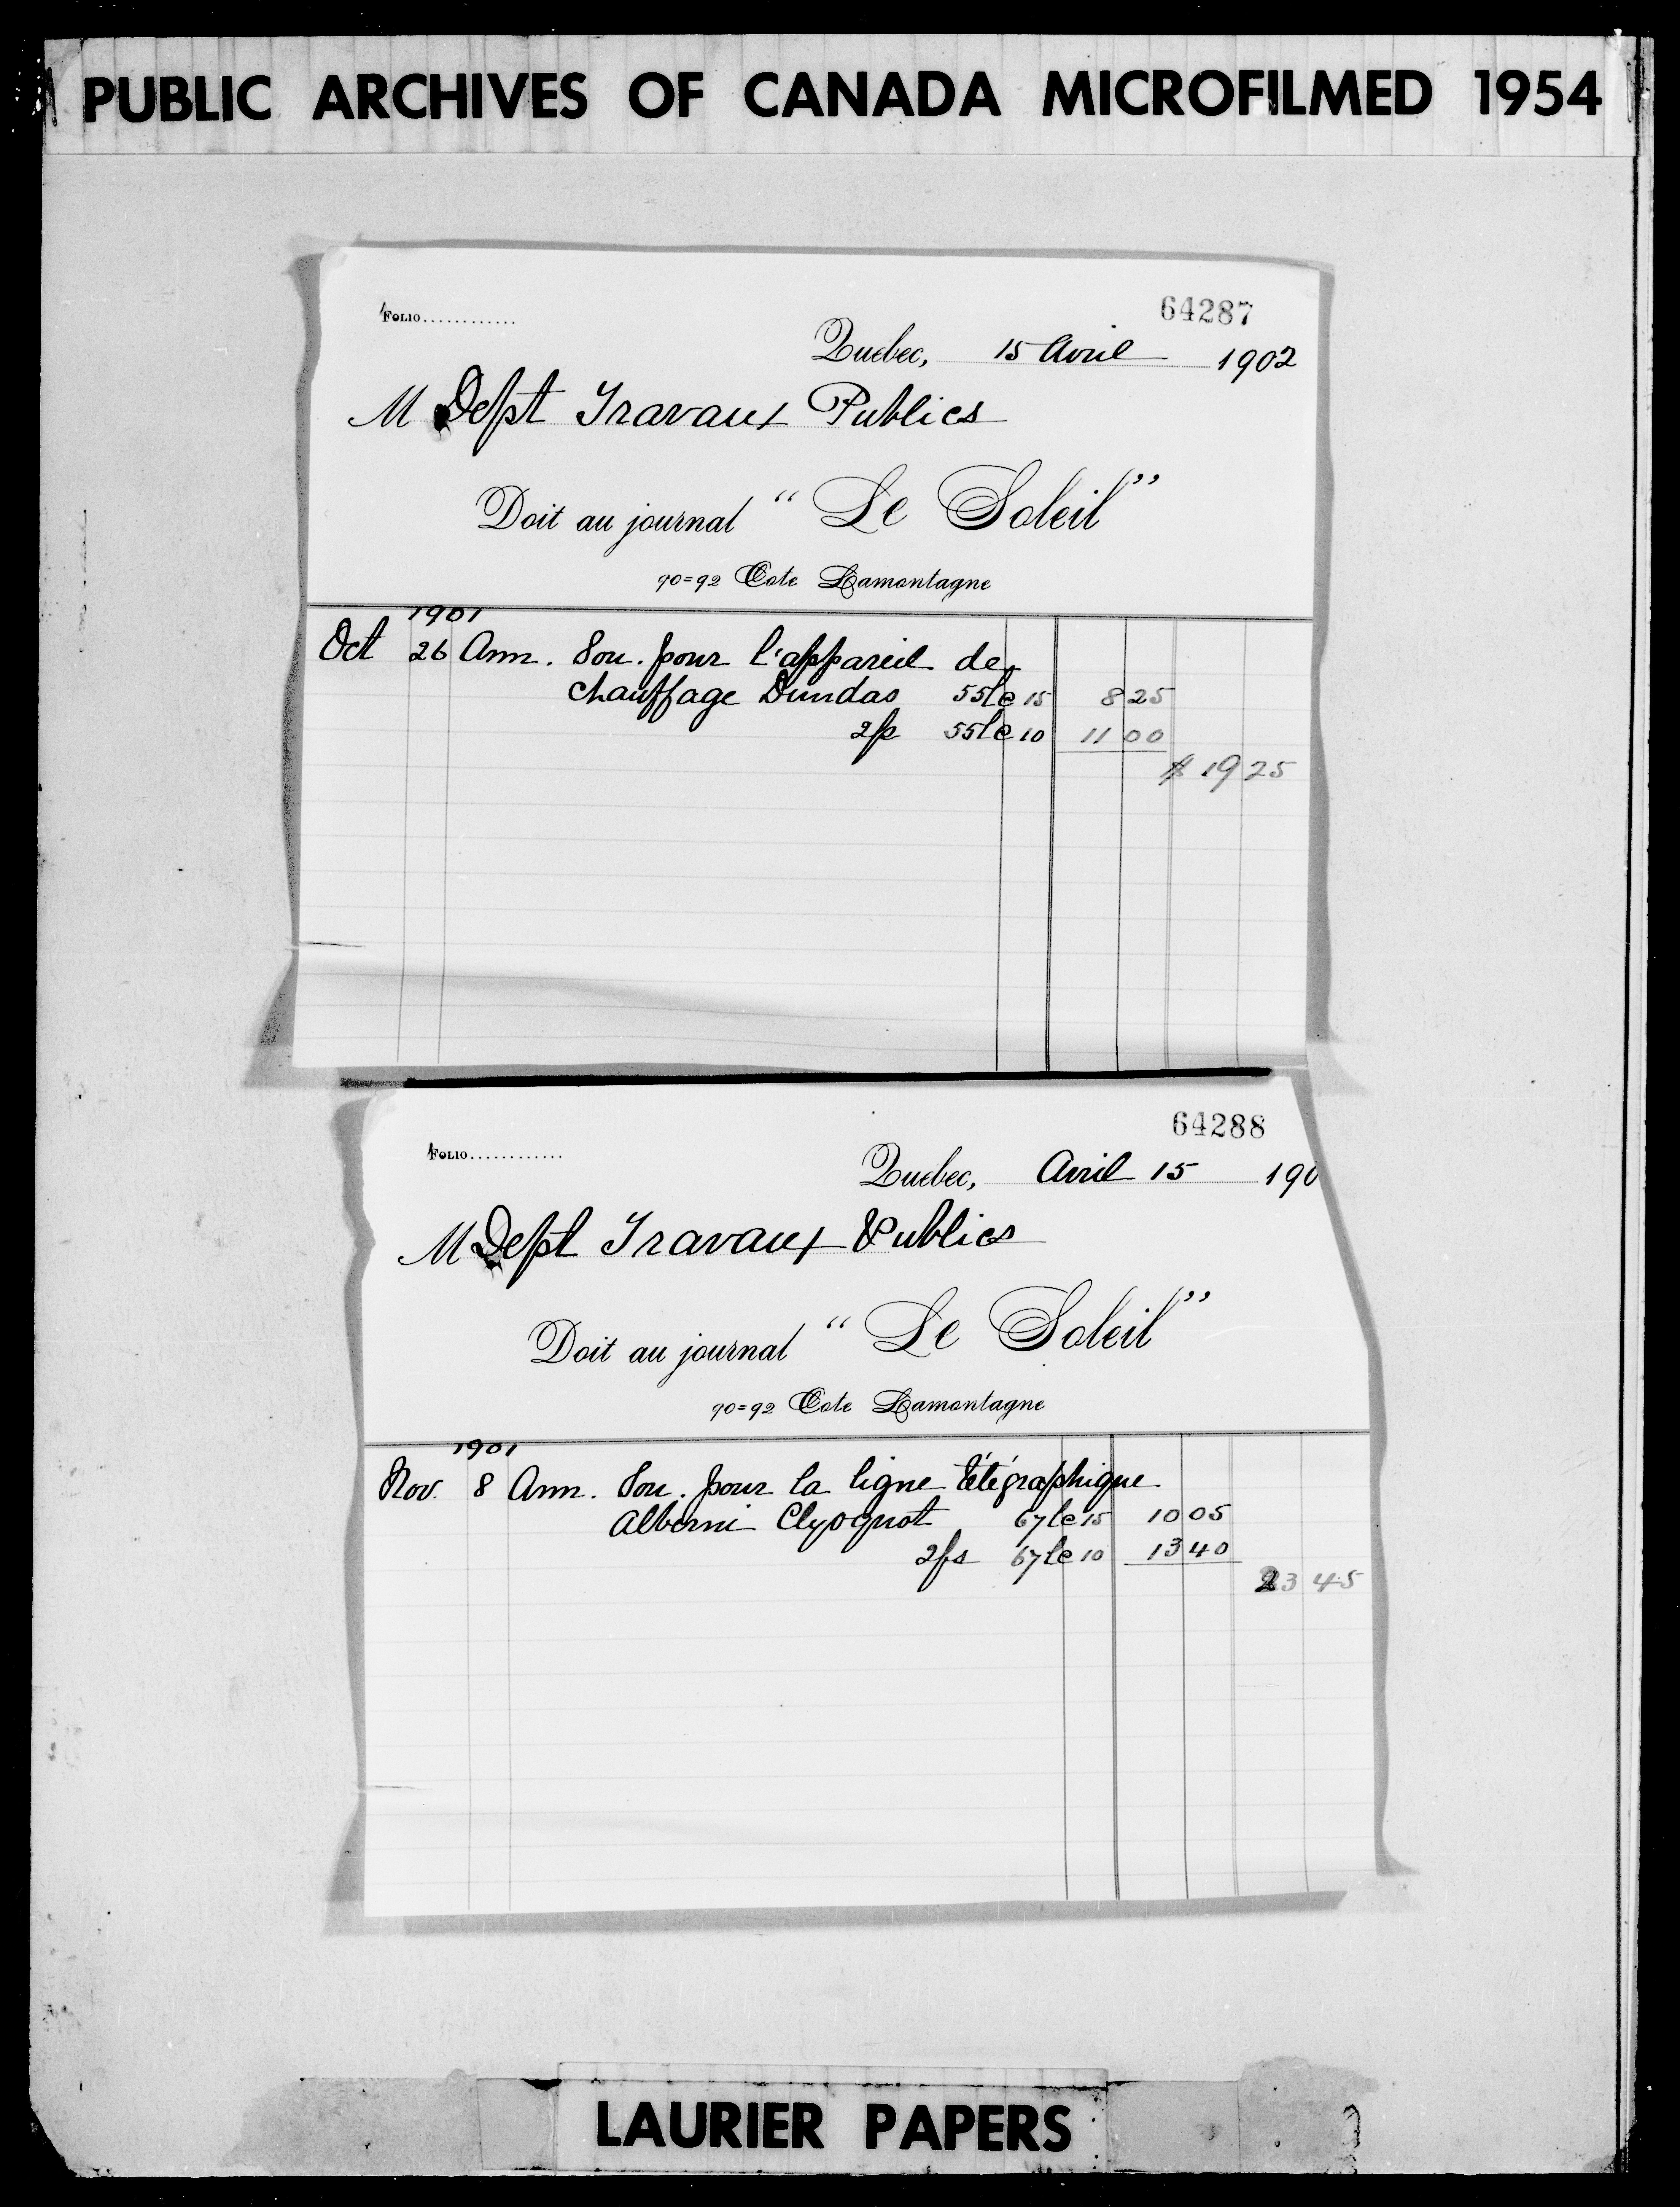 PUBLIC ARCHIVES OF CANADA MICROFILMED 1954
64287
FOLIO............
Quebec, 15 Avril 1902
M Dept Travaux Publics
Doit au journal “Le Soleil”
90=92 Cote Lamontagne
1901
Oct 26 Ann. Sou. pour l'appareil de
chauffage Dundas 55l @ 15 8 25
2fs 55l @ 10 11 00
$ 19 25
64288
FOLIO............
Quebec, Avril 15 190
M Dept Travaux Publics
Doit au journal “Le Soleil”
90=92 Cote Lamontagne
1901
Nov. 8 Ann. Sou. pour la ligne télégraphique
Alberni Clyoquot 67l @ 15 10 05
2fs 67l @ 10 13 40
23 45
LAURIER PAPERS